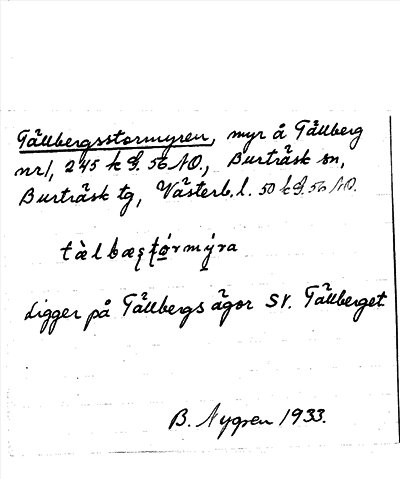 Tällbergsstormyren, myr å Tällberg
nr 1, 245 k S. 56 NO., Burträsk sn,
Burträsk tg, Västerb. l. 50 k S. 56 NO.
tàlbæʂʈó̱rmý̱ra
Ligger på Tällbergs ägor SV. Tällberget
B. Nygren 1933.